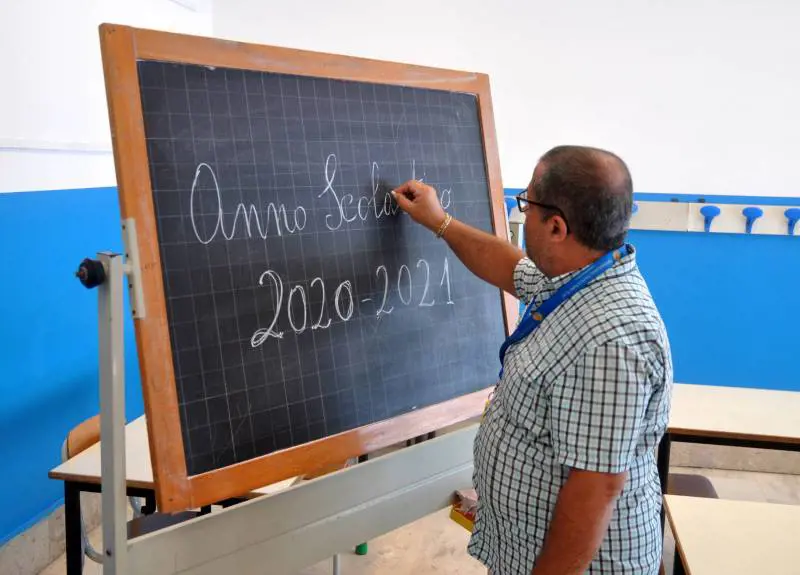 Anno Scolastico
2020-2021